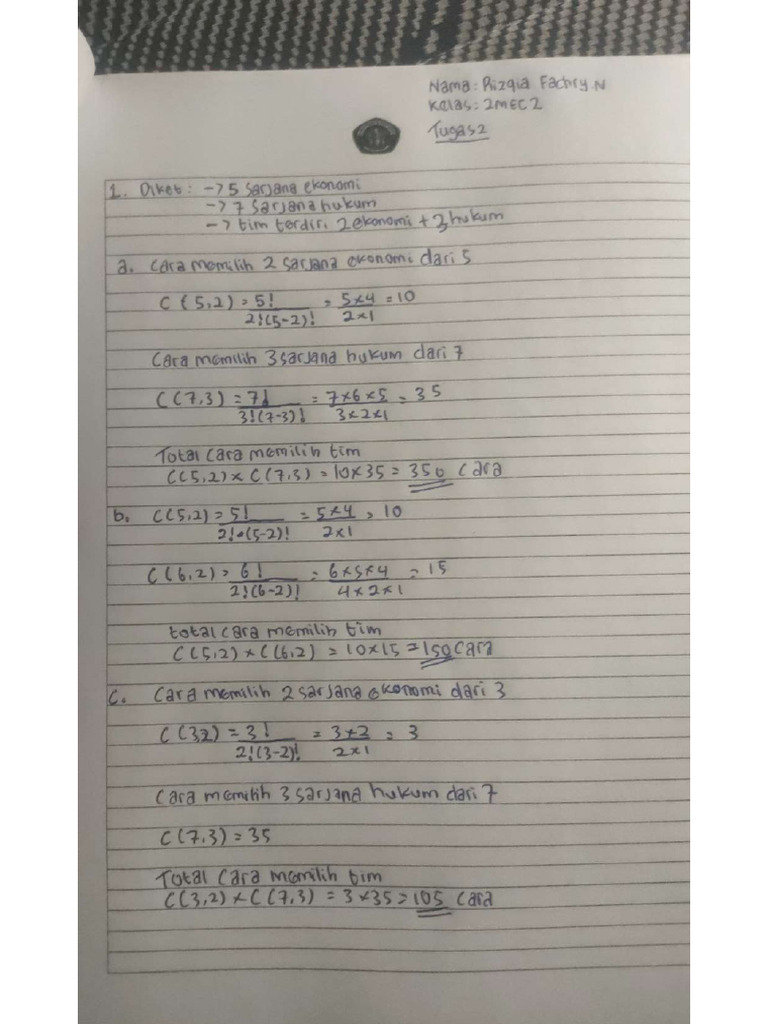 Nama: Rizqia Fachry.N
Kelas: 2MEC2
Tugas2
1. Diket: -> 5 sarjana ekonomi
-> 7 sarjana hukum
-> tim terdiri 2 ekonomi + 3 hukum
a. Cara memilih 2 sarjana ekonomi dari 5
C(5,2) = 5! = 5×4 = 10
2!(5-2)! 2×1
Cara memilih 3 sarjana hukum dari 7
C(7,3) = 7! = 7×6×5 = 35
3!(7-3)! 3×2×1
Total cara memilih tim
C(5,2) × C(7,3) = 10×35 = 350 Cara
b. C(5,2) = 5! = 5×4 = 10
2!•(5-2)! 2×1
C(6,2) = 6! = 6×5×4 = 15
2!(6-2)! 4×2×1
total cara memilih tim
C(5,2) × C(6,2) = 10×15 = 150 Cara
c. Cara memilih 2 sarjana ekonomi dari 3
C(3,2) = 3! = 3×2 = 3
2!(3-2)! 2×1
Cara memilih 3 sarjana hukum dari 7
C(7,3) = 35
Total cara memilih tim
C(3,2) × C(7,3) = 3×35 = 105 Cara